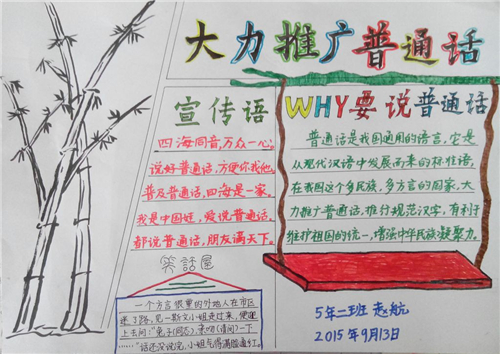 大力推广普通话
宣传语
四海同音，万众一心。
说好普通话，方便你我他。
普及普通话，四海是一家。
我是中国娃，爱说普通话。
都说普通话，朋友满天下。
WHY要说普通话
普通话是我国通用的语言，它是
从现代汉语中发展而来的标准语，
在我国这个多民族，多方言的国家，大
力推广普通话，推行规范汉字，有利于
维护祖国的统一，增强中华民族凝聚力。
笑話屋
一个方言很重的外地人在市区
迷了路，见一斯文小姐走过来，便迎
上去问："兔子（同志），亲吻（请问）一下
……"话还没说完，小姐气得满脸通红。
5年二班 赵航
2015年9月13日